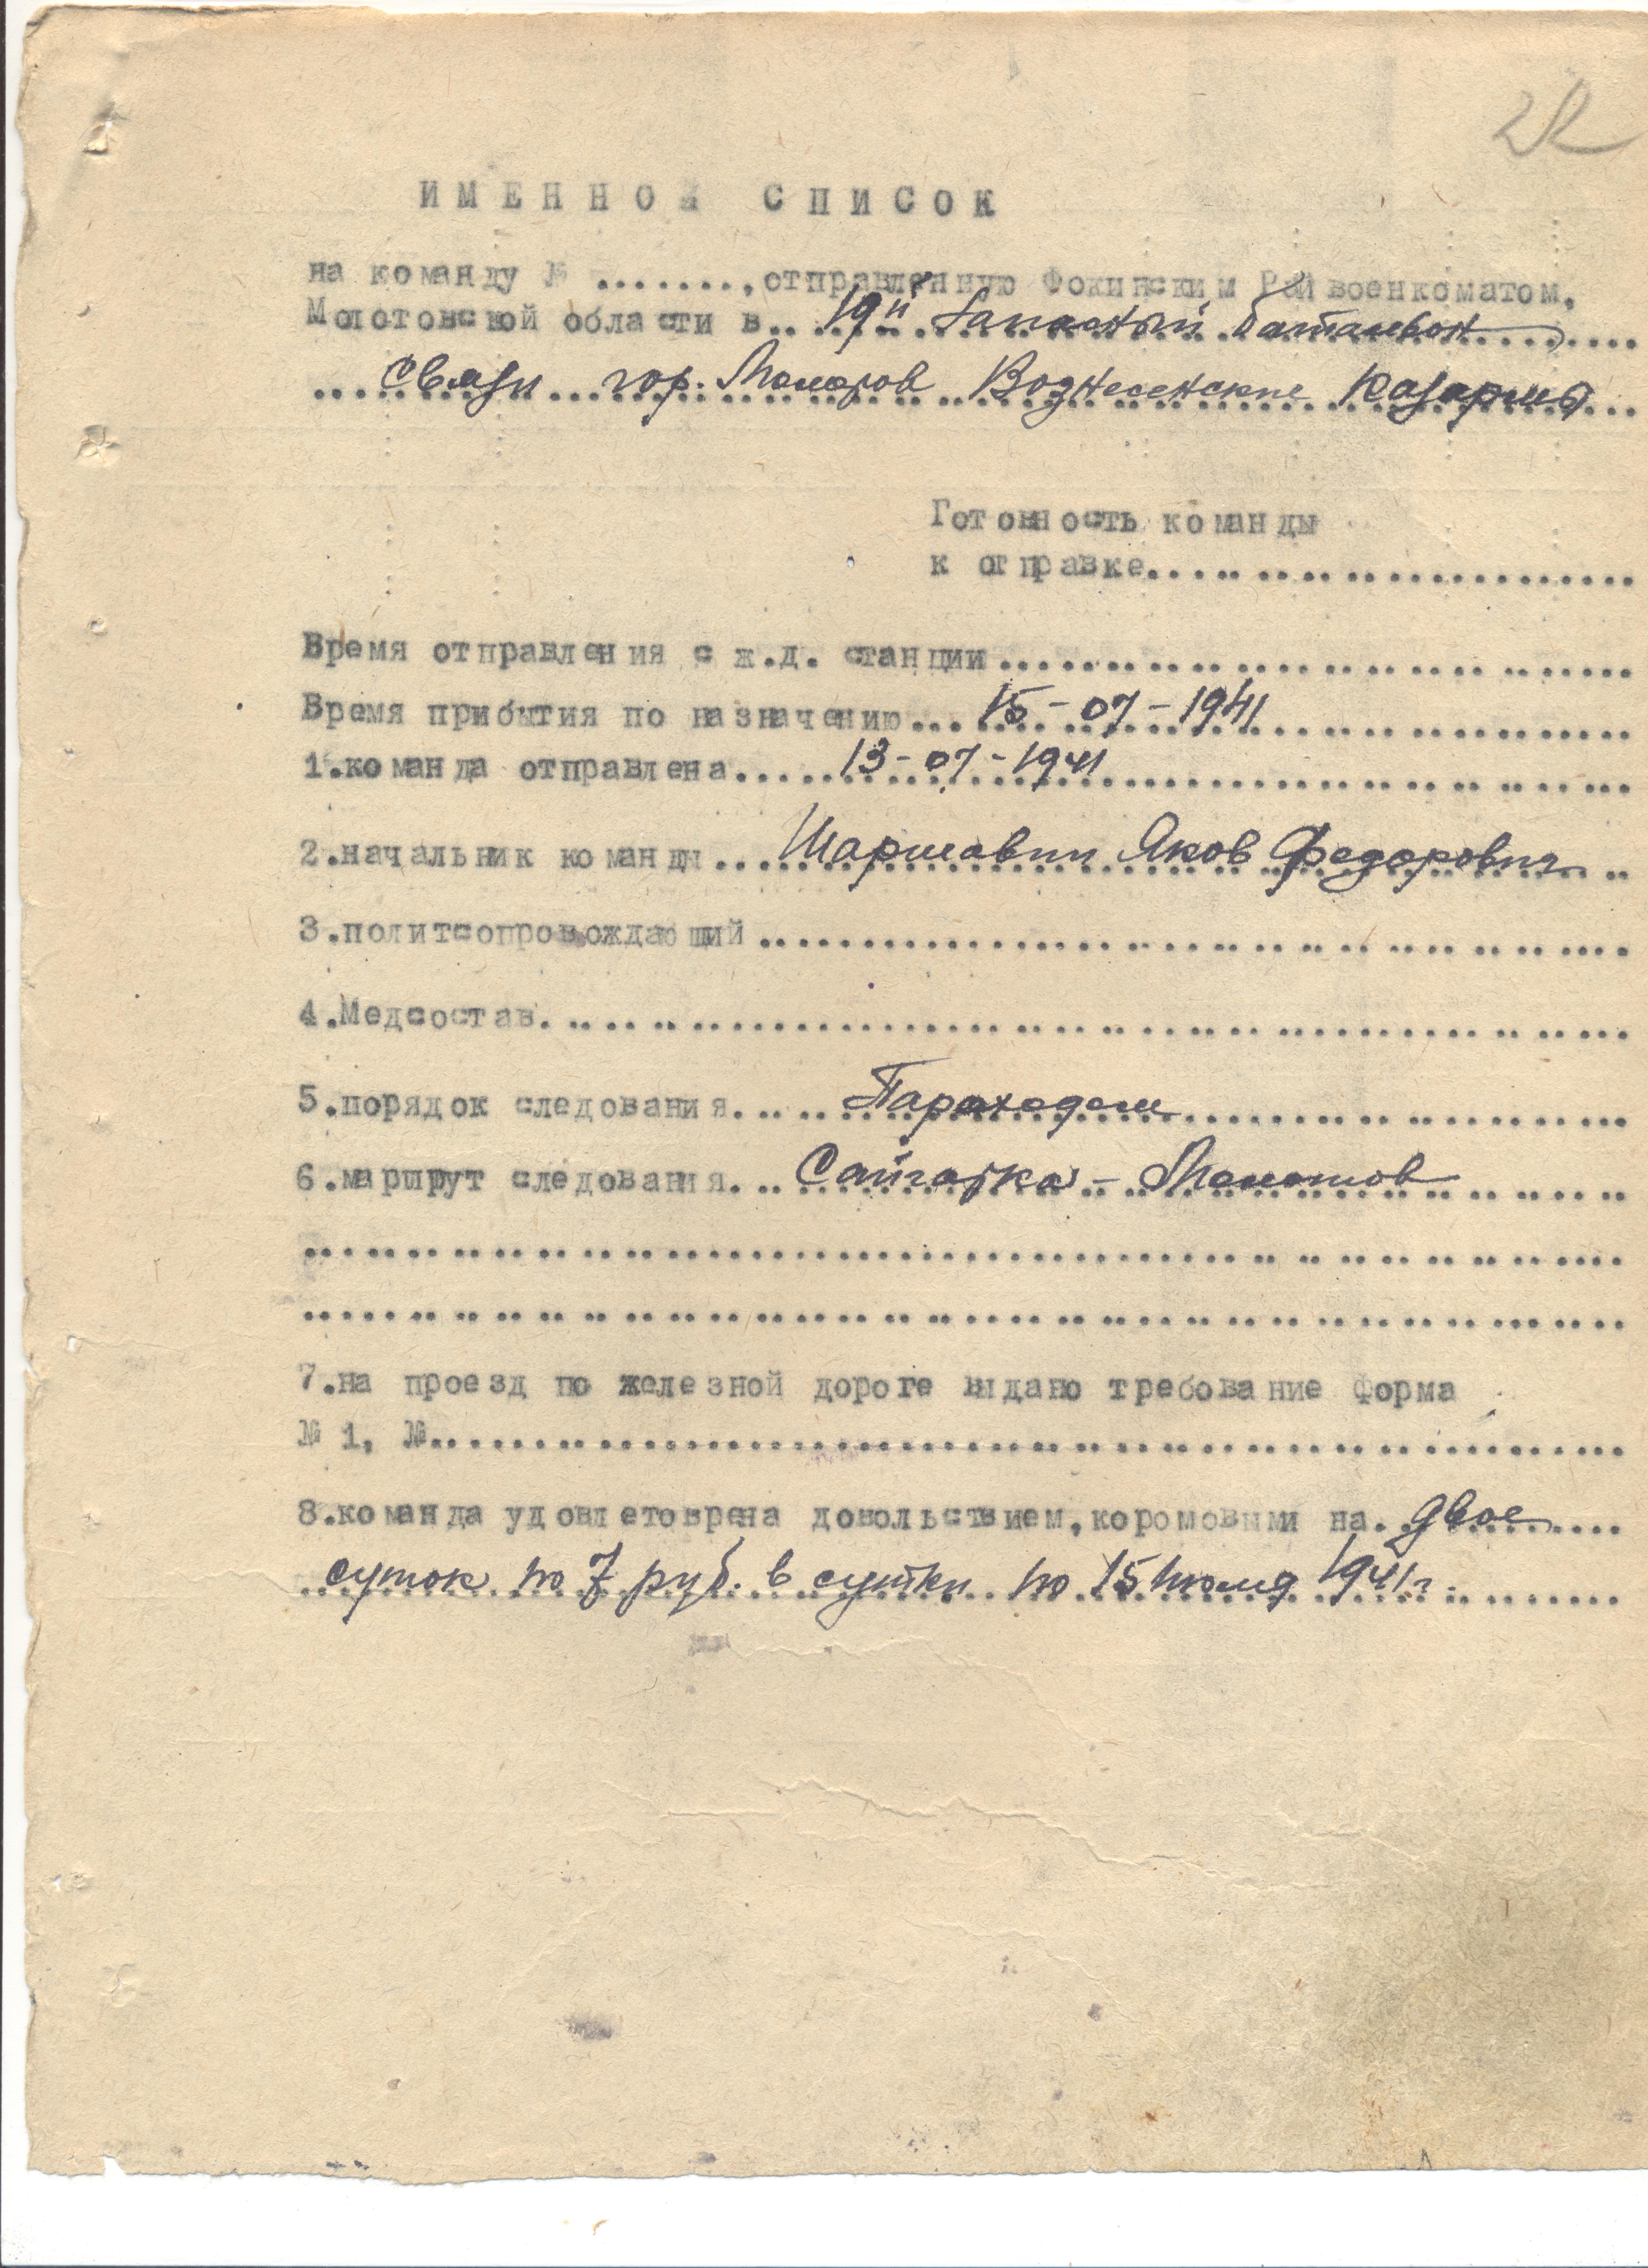 22
ИМЕННОЙ СПИСОК
на команду № ........, отправленную Фокинским Райвоенкоматом,
Молотовской области в.. 19й Запасный батальон
Связи гор. Молотов Вознесенские казармы
Готовность команды
к отправке..................................
Время отправления с ж.д. станции..................................
Время прибытия по назначению... 15-07-1941
1.команда отправлена..... 13-07-1941
2.начальник команды... Шармавин Яков Федорович
3.политсопровождающий..................................
4.Медсостав..................................
5.порядок следования..... Пароходом
6.маршрут следования... Сайгатка - Молотов
7.на проезд по железной дороге выдано требование форма
№ 1, №..................................
8.команда удовлетоврена довольствием,коромовыми на. двое
суток по 7 руб. в сутки по 15 июля 1941 г.